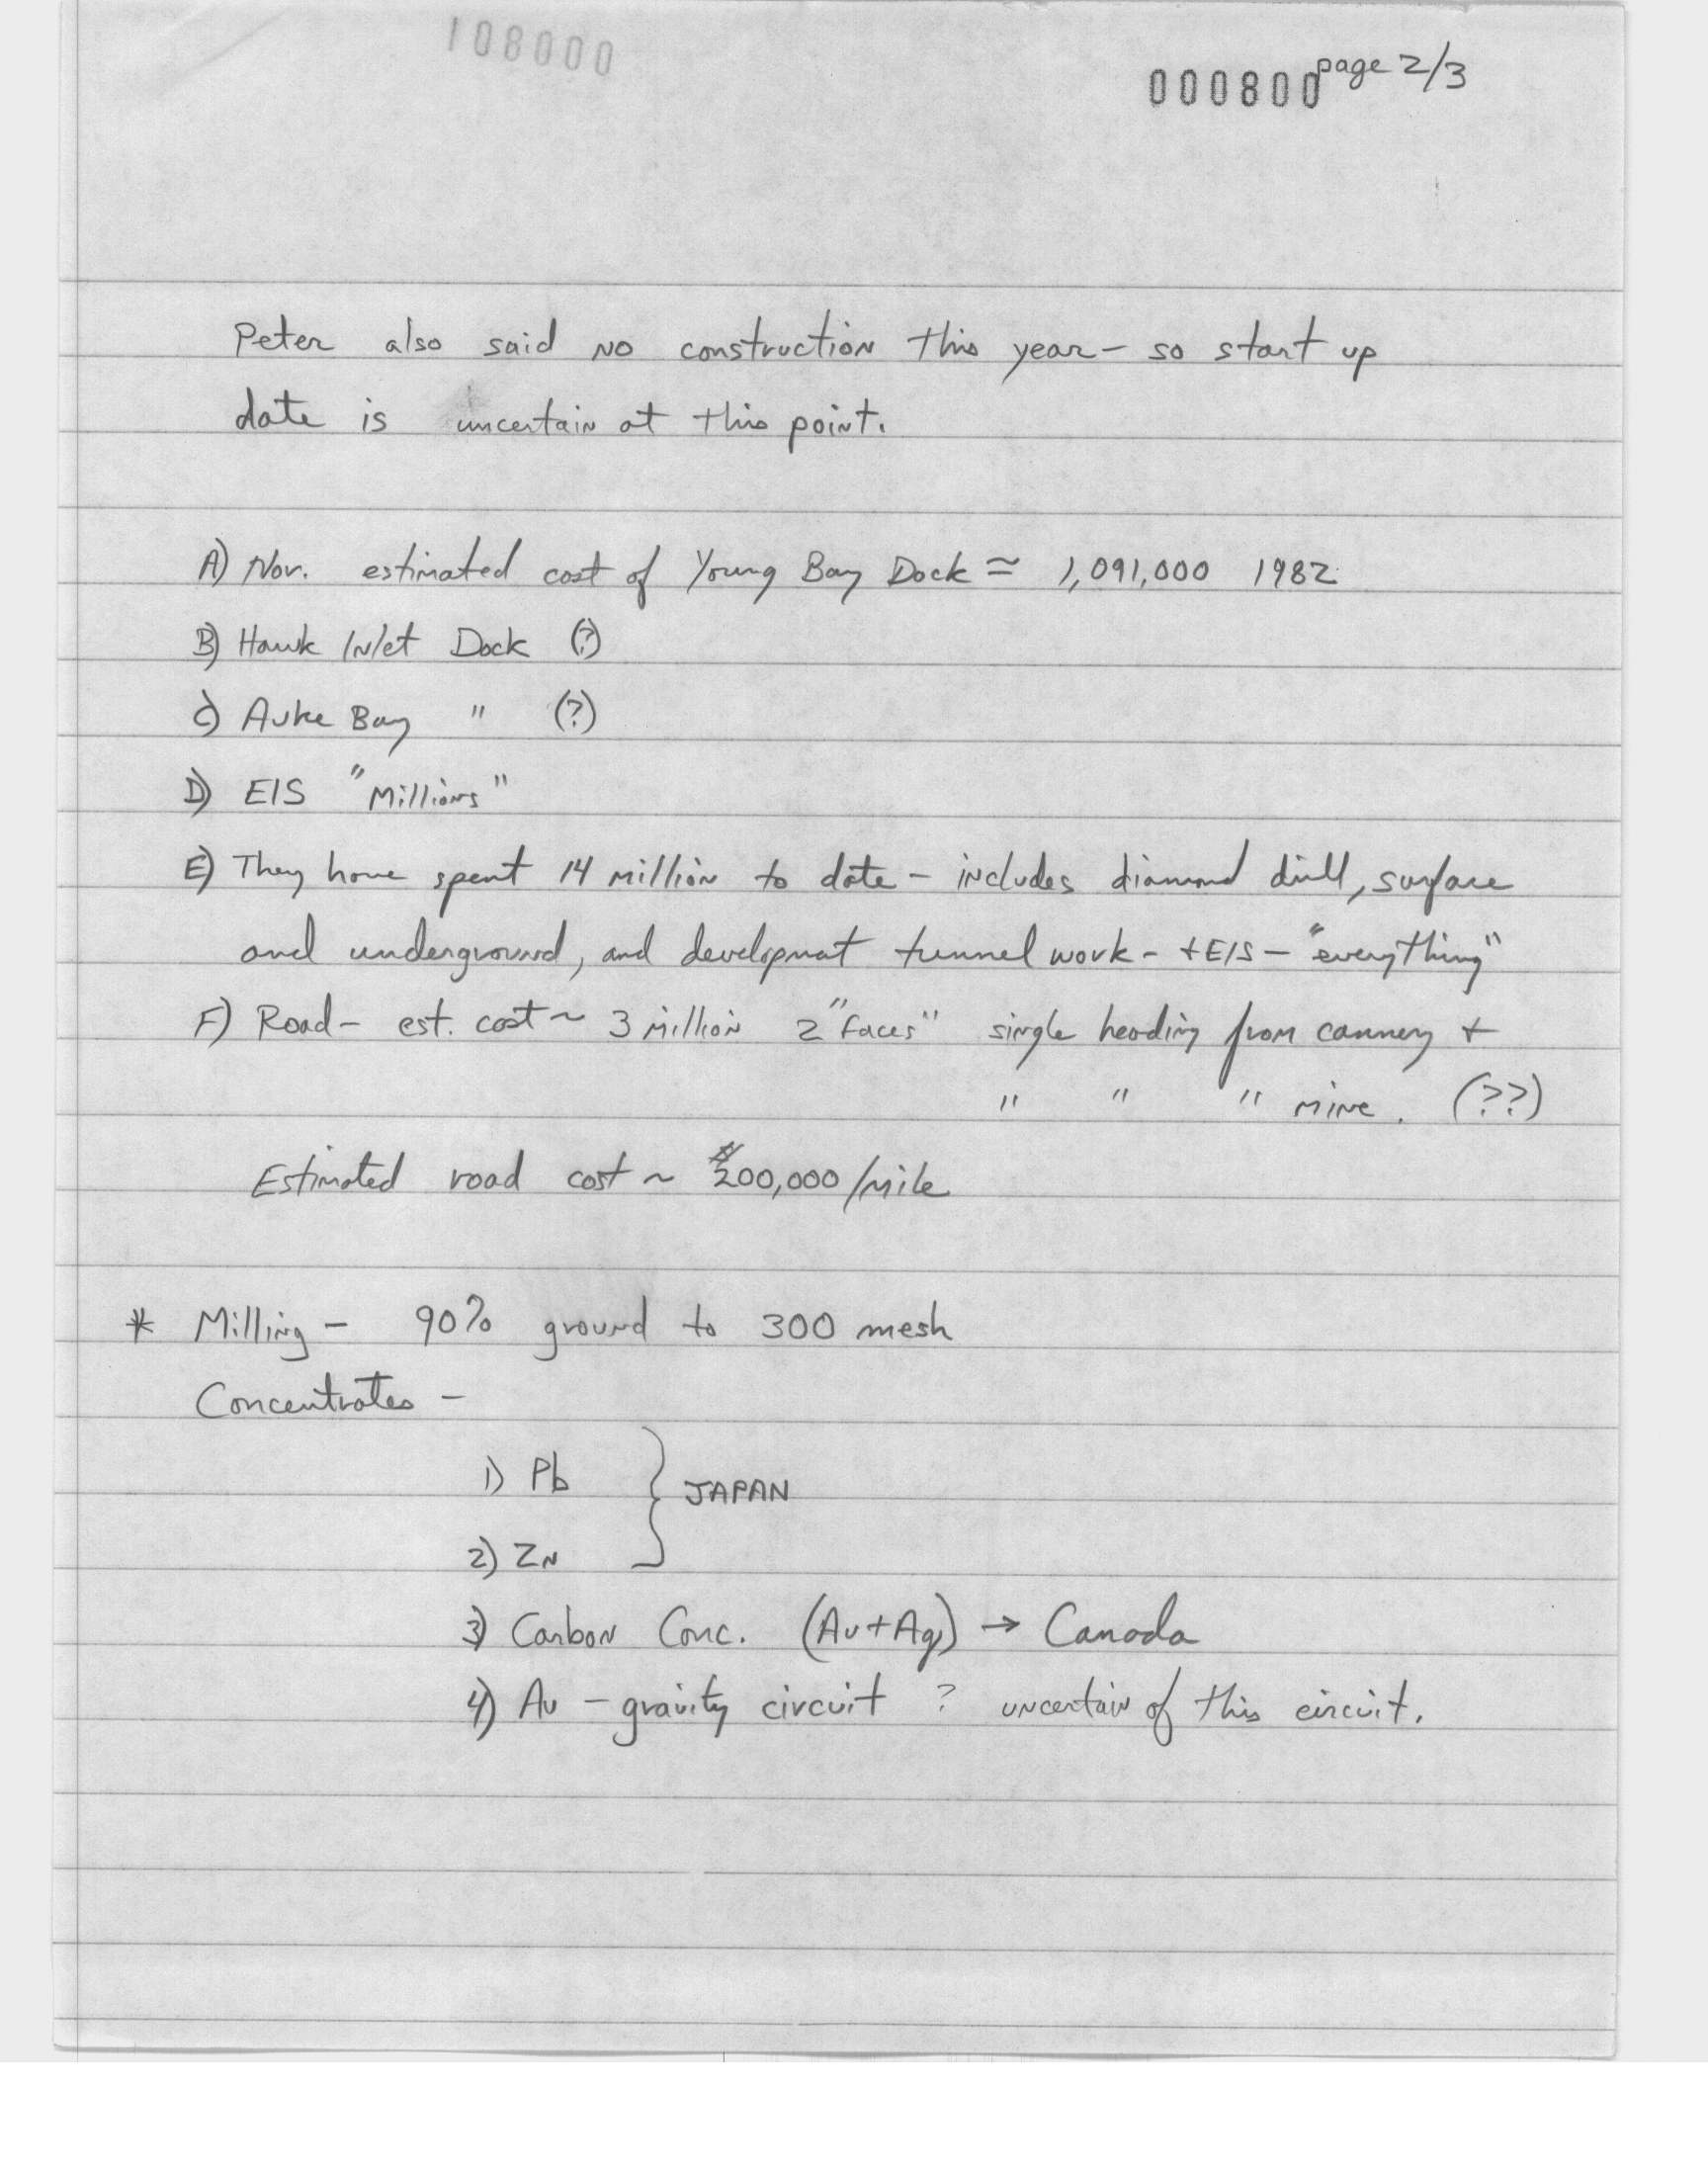 108000
000800 page 2/3
Peter also said no construction this year - so start up
date is uncertain at this point.
A) Nov. estimated cost of Young Bay Dock ≃ 1,091,000 1982
B) Hawk Inlet Dock (?)
C) Auke Bay " (?)
D) EIS "Millions"
E) They have spent 14 million to date - includes diamond drill, surface
and underground, and developmat tunnel work - + EIS - "everything"
F) Road - est. cost ~ 3 million 2 "faces" single heading from cannery +
" " " mine. (??)
Estimated road cost ~ $200,000/mile
* Milling - 90% ground to 300 mesh
Concentrates -
1) Pb
} JAPAN
2) ZN
3) Carbon Conc. (Au+Ag) → Canada
4) Au - gravity circuit ? uncertain of this circuit.